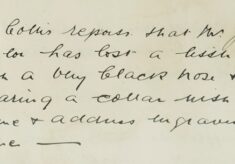 Collis reports that Mr.
lor has lost a little
h a very black nose &
aring a collar with
me & address engrave
me —